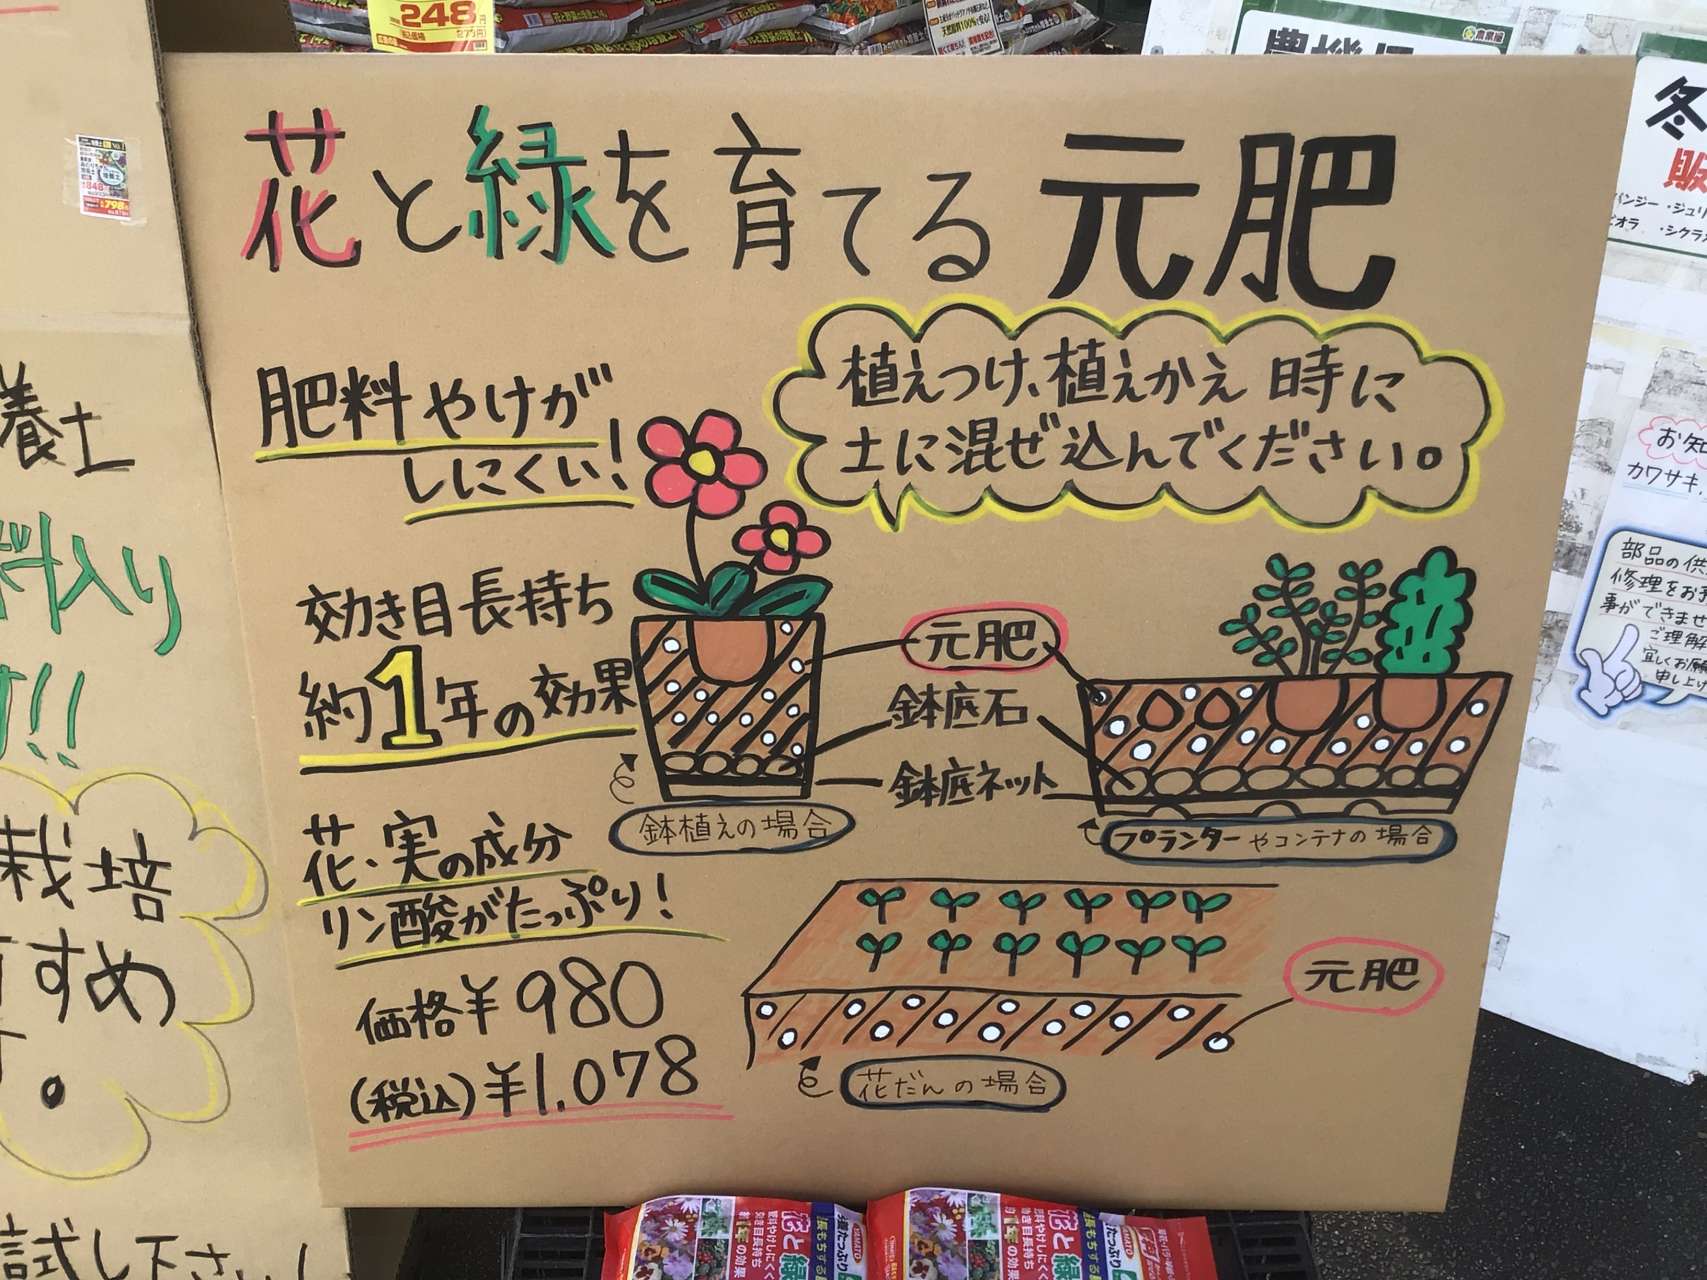 248
花と緑を育てる元肥
植えつけ、植えかえ時に
土に混ぜ込んでください。
肥料やけが
しにくい!
効き目長持ち
約1年の効果
花・実の成分
リン酸がたっぷり!
価格¥980
(税込)¥1,078
元肥
鉢底石
鉢底ネット
鉢植えの場合
プランターやコンテナの場合
元肥
花だんの場合
養土
入り
!!
栽培
すすめ
試し下さい
798
冬
販
パンジー・ジュリ
ビオラ・シクラメ
お知
カワサキ
部品の供
修理をお
事ができませ
ご理解
宜しくお願
申し上げ
花と緑
肥料やけしにくく
効き目長持ち
約1年の効果